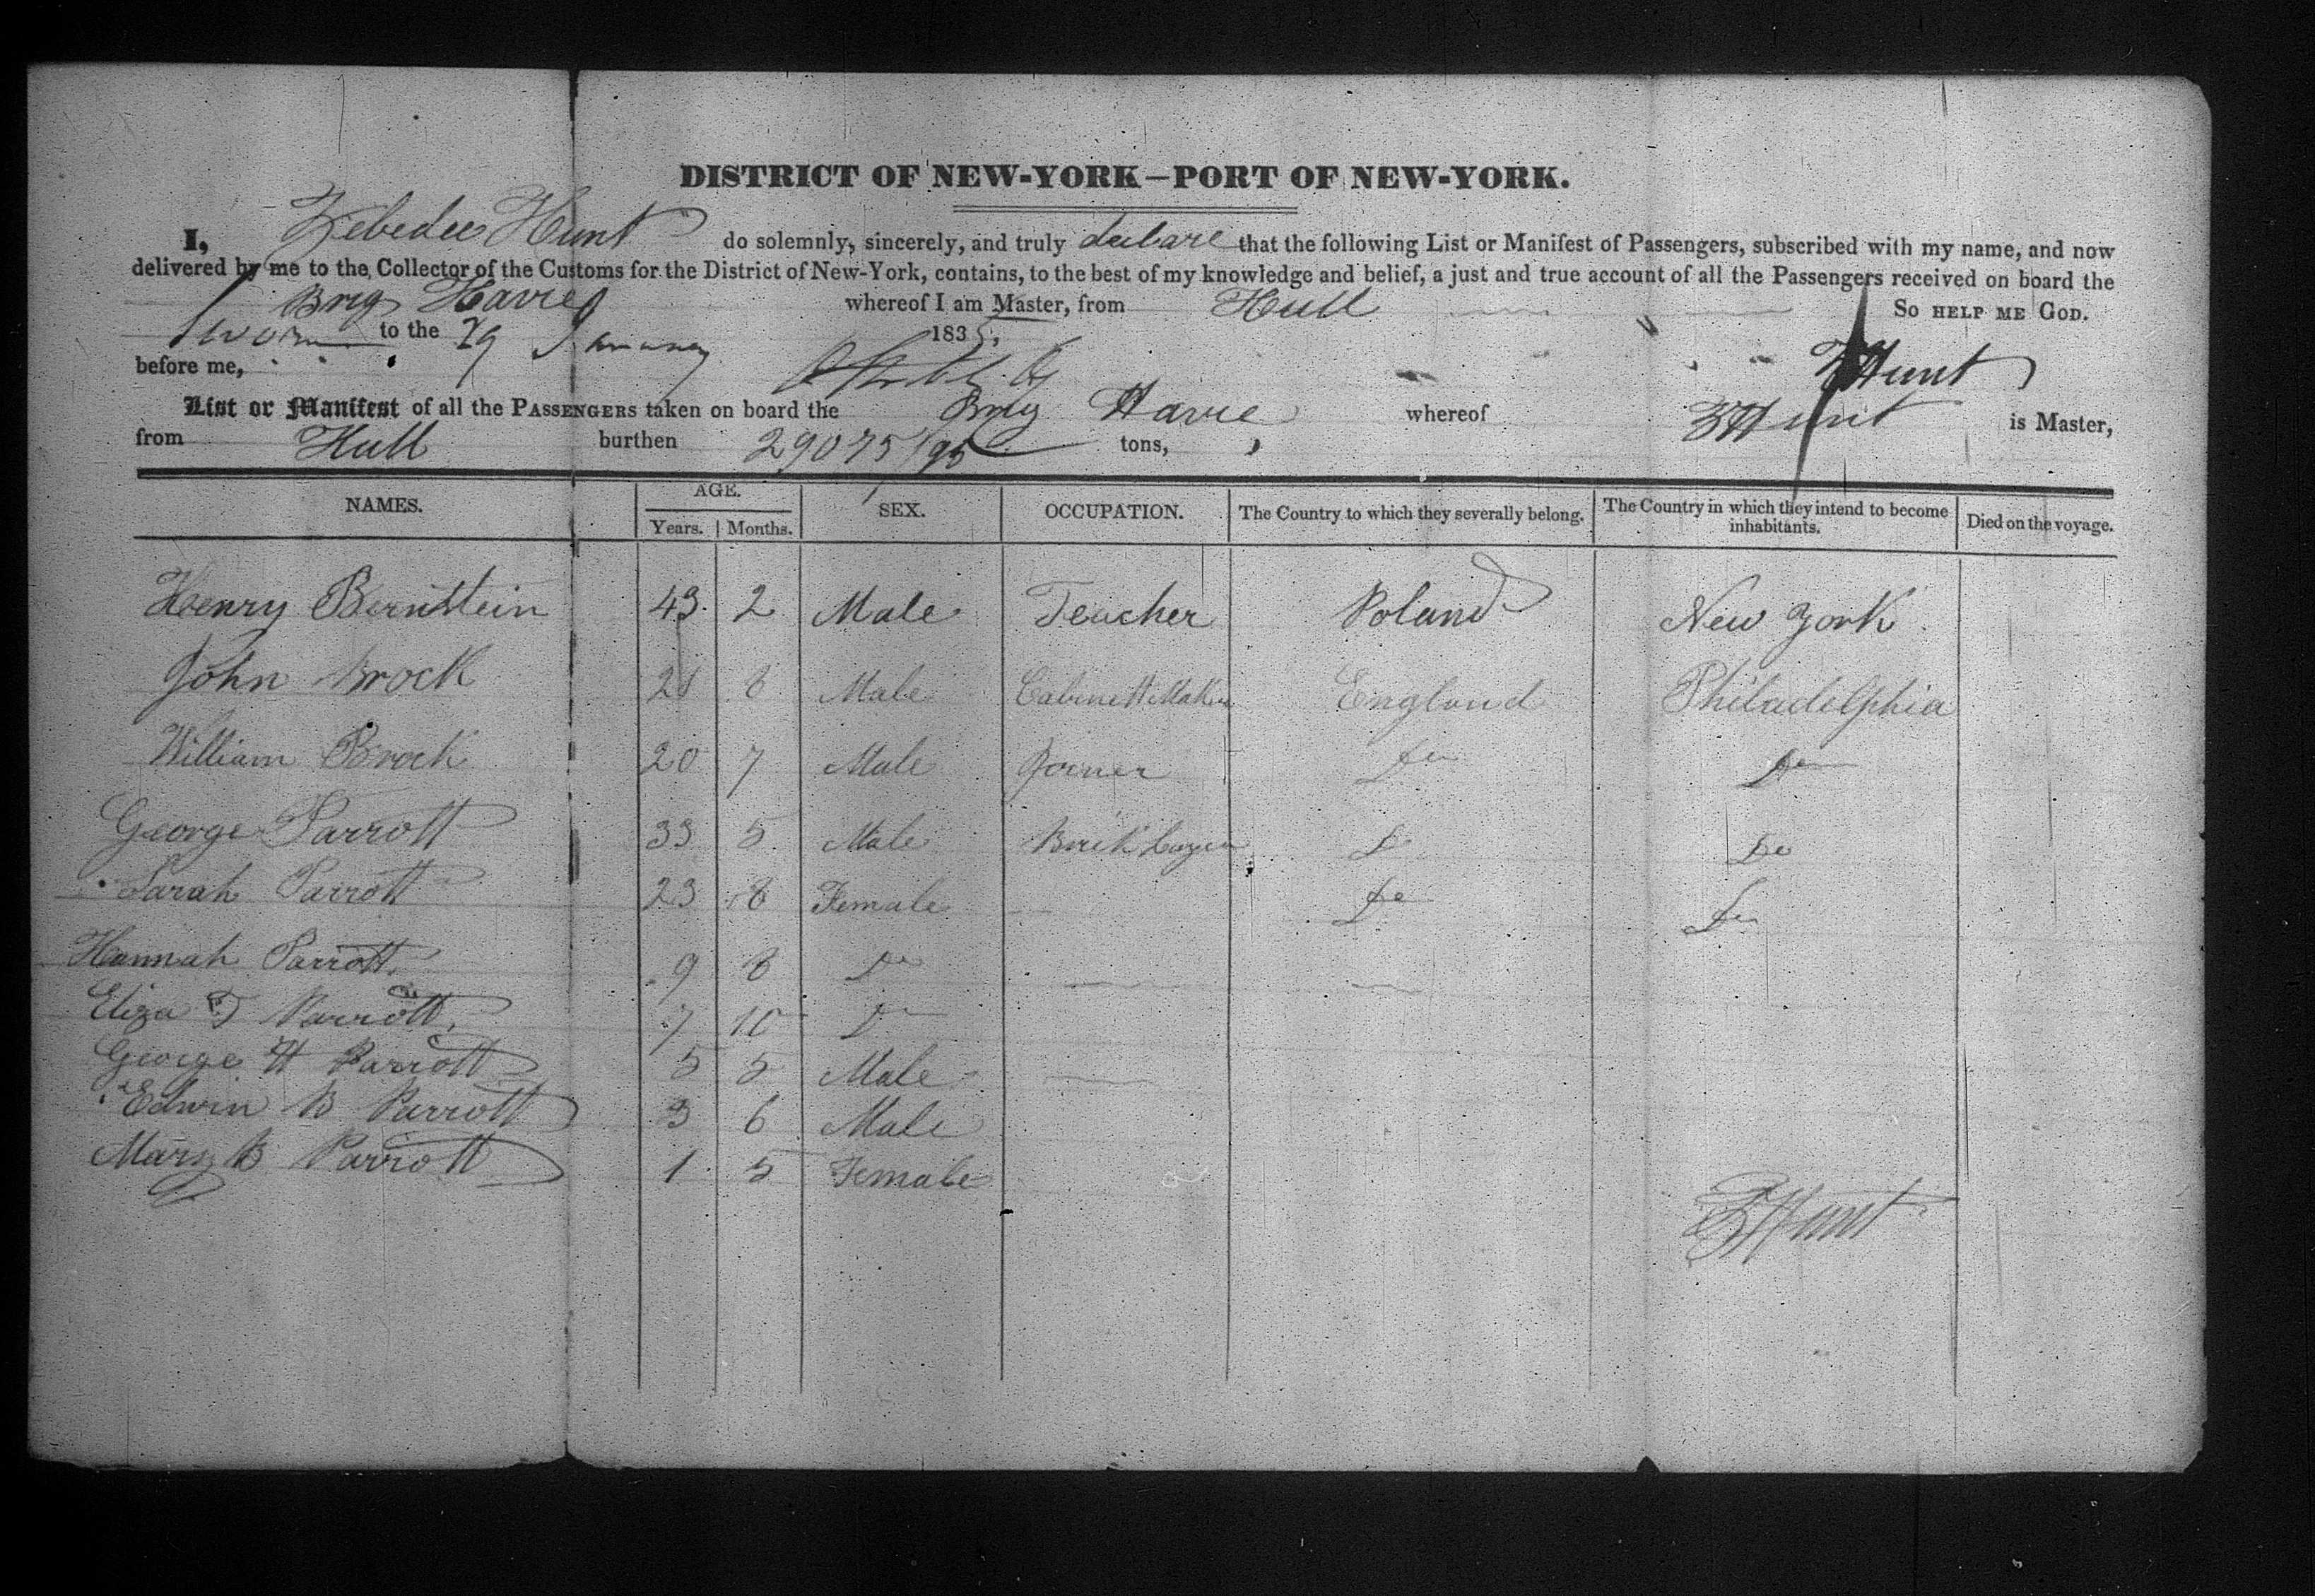 DISTRICT OF NEW-YORK—PORT OF NEW-YORK.
I, Zebedee Hunt do solemnly, sincerely, and truly declare that the following List or Manifest of Passengers, subscribed with my name, and now
delivered by me to the Collector of the Customs for the District of New-York, contains, to the best of my knowledge and belief, a just and true account of all the Passengers received on board the
Brig Havre whereof I am Master, from Hull So HELP ME GOD.
Sworn to the 29 January 1835.
before me, Z Hunt
List or Manifest of all the PASSENGERS taken on board the Brig Havre whereof Z Hunt is Master,
from Hull burthen 290 75/95 tons,
NAMES. AGE. Years. Months. SEX. OCCUPATION. The Country to which they severally belong. The Country in which they intend to become inhabitants. Died on the voyage.
Henry Bernstein 43 2 Male Teacher Poland New York
John Brock 21 8 Male Cabinett Maker England Philadelphia
William Brock 20 7 Male Joiner Do Do
George Parrott 33 5 Male Brick Layer Do Do
Sarah Parrott 23 8 Female Do Do
Hannah Parrott 9 8 Do
Eliza Parrott 7 10 Do
George H Parrott 5 5 Male
Edwin B Parrott 3 6 Male
Mary B Parrott 1 5 Female
Z Hunt